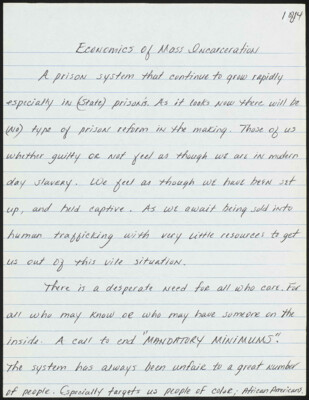 1 of 4
Economics of Mass Incarceration
A prison system that continue to grow rapidly
especially in (State) prison's. As it looks now there will be
(No) type of prison reform in the making. Those of us
whether guilty or not feel as though we are in modern
day slavery. We feel as though we have been set
up, and held captive. As we await being sold into
human trafficking with very little resources to get
us out of this vile situation.
There is a desperate need for all who care. For
all who may know or who may have someone on the
inside. A call to end "MANDATORY MINIMUMS".
The system has always been unfair to a great number
of people. Especially targets us people of color; African Americans.